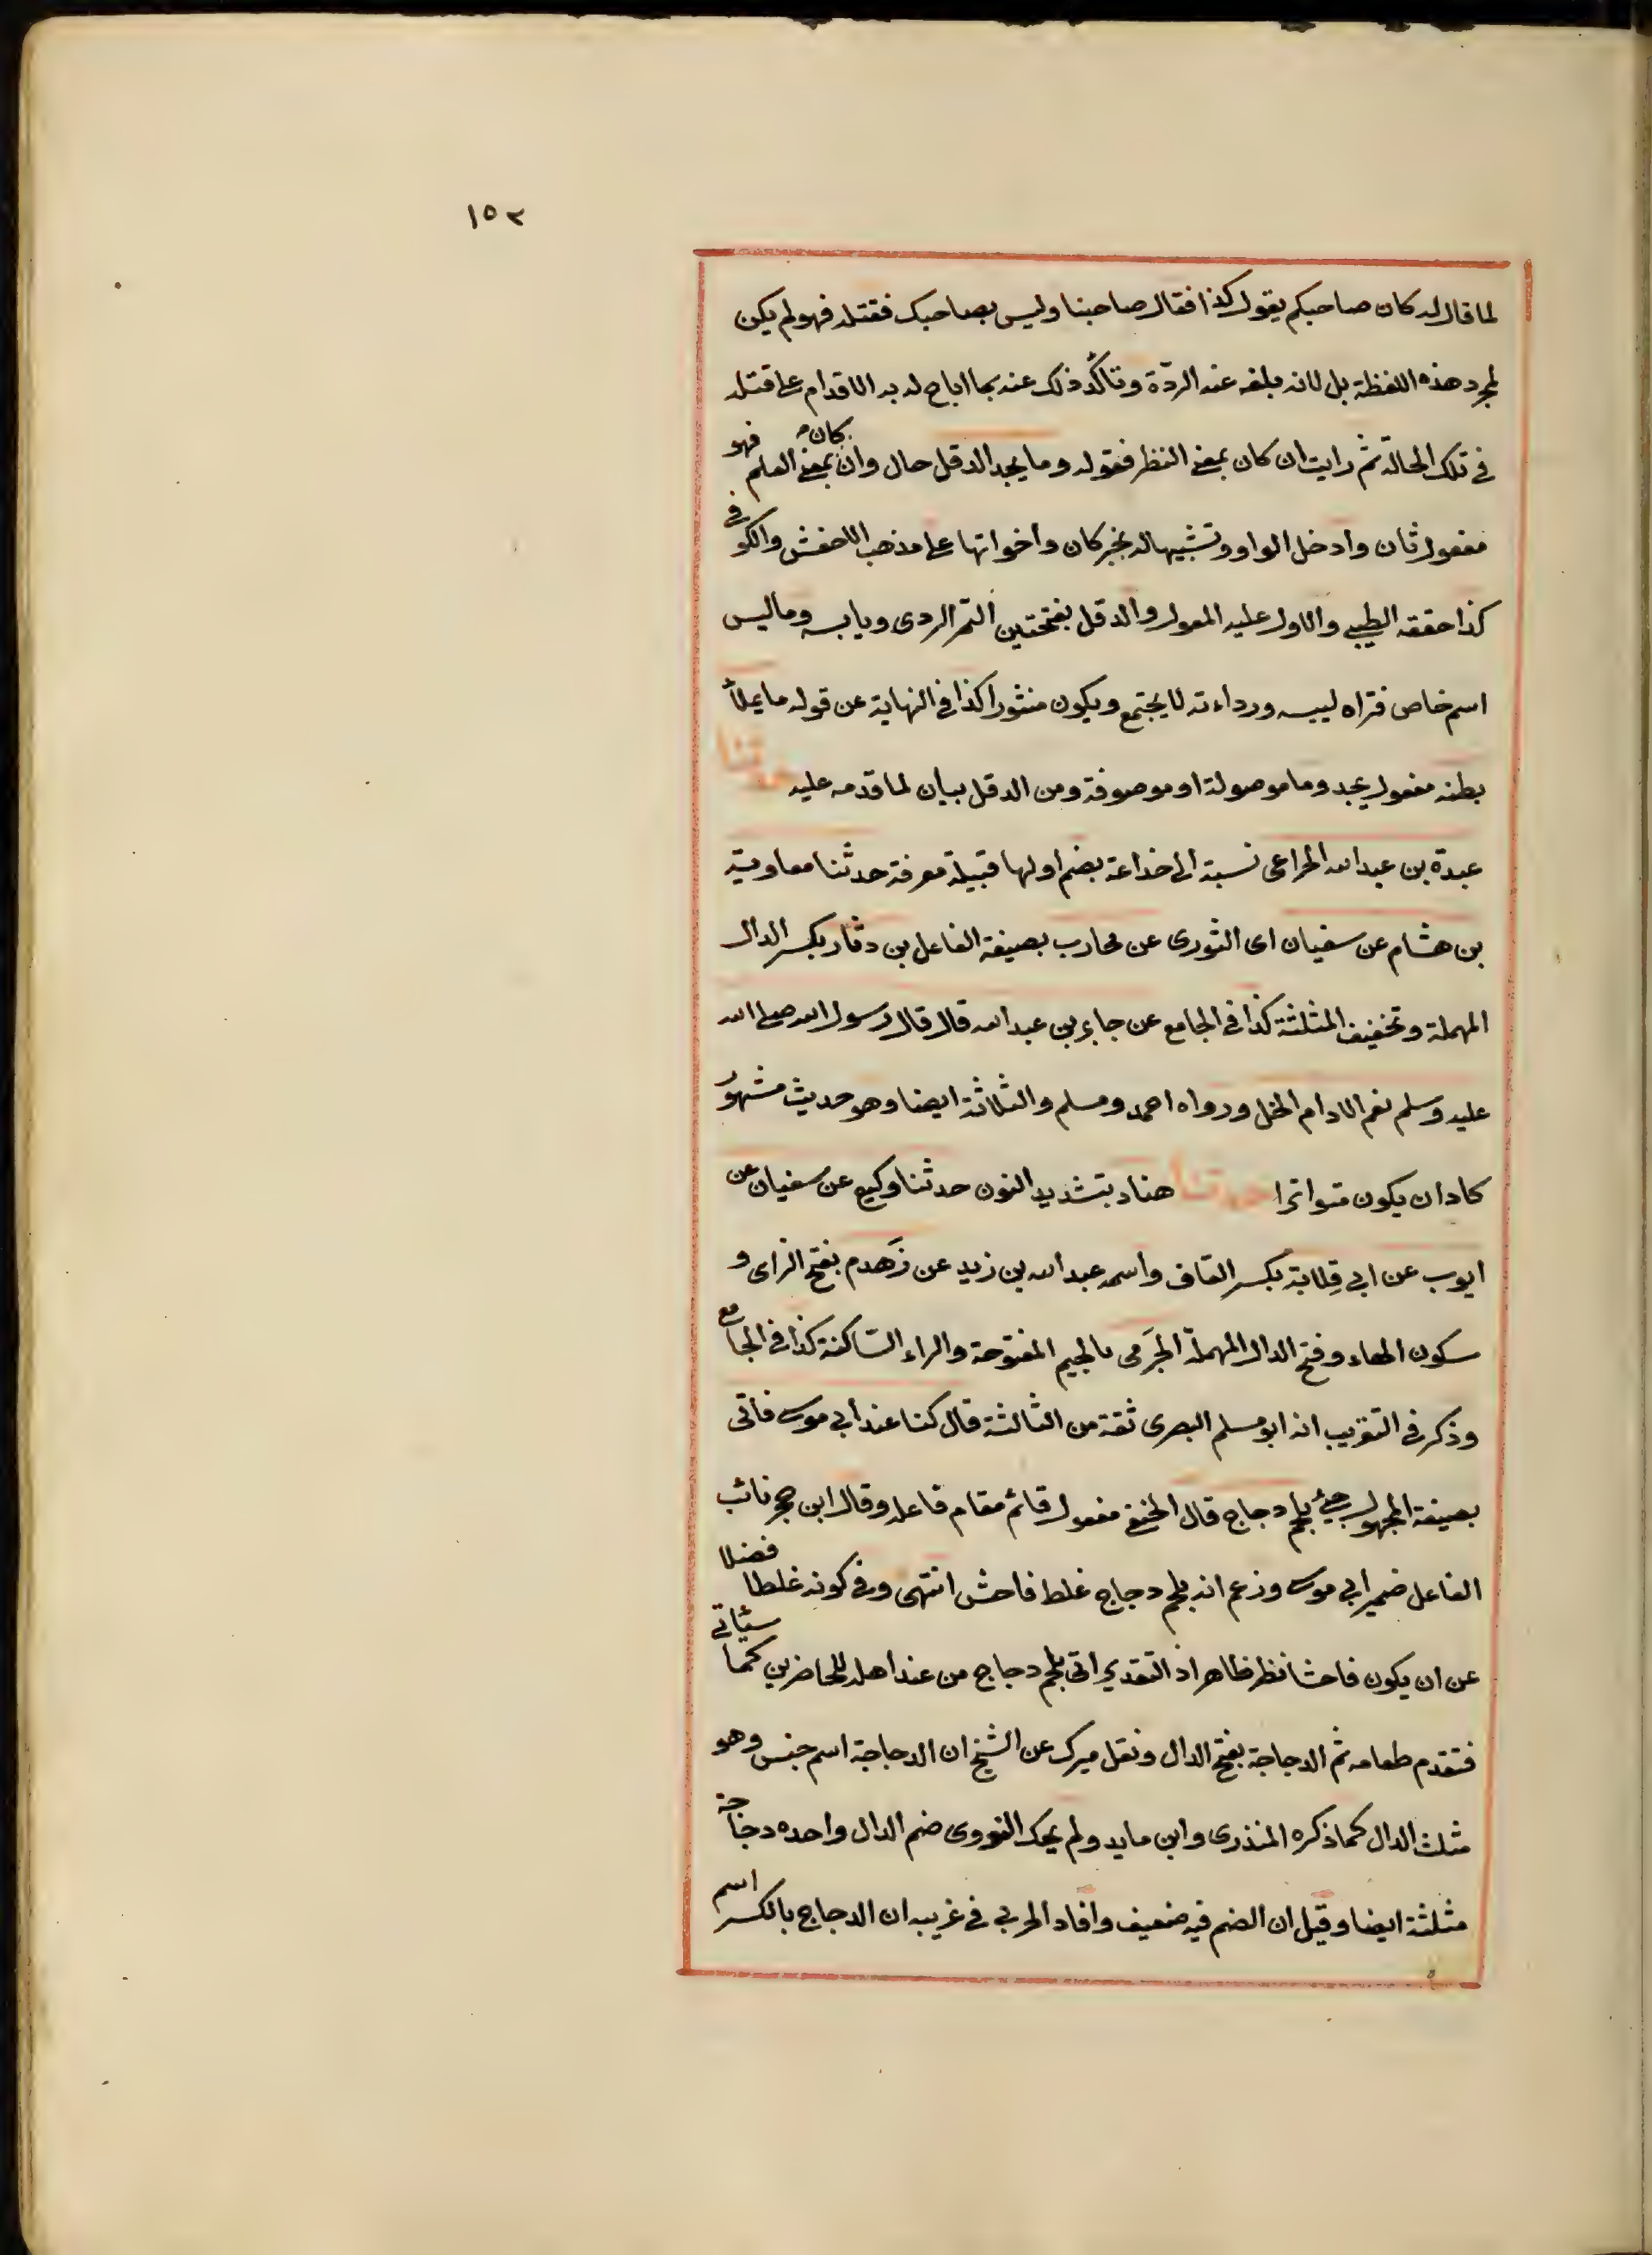 ١٥٢
لما قال له كان صاحبكم يقول كذا فقال صاحبنا وليس بصاحبك فقتله فهو لم يكن
لمجرد هذه اللفظة بل لانه بلغه عنه الردّة وتأكّد ذلك عنه بما اباح له به الاقدام على قتله
في تلك الحالة ثم رايت ان كان بمعنى النظر فقوله وما يجد الدقل حال وان كان بمعنى العلم فهو
مفعول ثان وادخل الواو وتشبيها له بخبر كان واخواتها على مذهب الاخفش والكوفي
كذا حققه الطيبي والاول عليه المعول والدقل بفتحتين التمر الردى ويابسه وما ليس
اسم خاص فتراه ليبسه ورداءته لا يجتمع ويكون منثورا كذا في النهاية عن قوله ما يملأ
بطنه مفعول يجد وما موصولة او موصوفة ومن الدقل بيان لما قدمه عليه حدثنا
عبدة بن عبد الله الخزاعى نسبة الى خزاعة بضم اولها قبيلة معرفة حدثنا معاوية
بن هشام عن سفيان اى الثورى عن محارب بصيغة الفاعل بن دثار بكسر الدال
المهملة وتخفيف المثلثة كذا في الجامع عن جابر بن عبد الله قال قال رسول الله صلى الله
عليه وسلم نعم الادام الخل ورواه احمد ومسلم والثلاثة ايضا وهو حديث مشهور
كاد ان يكون متواترا حدثنا هناد بتشديد النون حدثنا وكيع عن سفيان عن
ايوب عن ابي قِلابة بكسر القاف واسمه عبد الله بن زيد عن زَهدم بفتح الزاى و
سكون الهاء وفتح الدال المهملة الجَرمى بالجيم المفتوحة والراء الساكنة كذا في الجامع
وذكر في التقريب انه ابو مسلم البصرى ثقة من الثالثة قال كنا عند ابي موسى فأتى
بصيغة المجهول جيء بلحم دجاج قال الحنفي مفعول قائم مقام فاعله وقال ابن حجر نائب
الفاعل ضمير ابي موسى وزعم انه بلحم دجاج غلط فاحش انتهى وفي كونه غلطا فضلا
عن ان يكون فاحشا نظر ظاهر اذ التقدير اتى بلحم دجاج من عند اهله للحاضرين كما سيأتي
فتقدم طعامه ثم الدجاجة بفتح الدال ونقل ميرك عن الشيخ ان الدجاجة اسم جنس وهو
مثلث الدال كما ذكره المنذرى وابن مايد ولم يحك النووى ضم الدال واحده دجاجة
مثلثة ايضا وقيل ان الضم فيه ضعيف وافاد الحربي في غريبه ان الدجاج بالكسر اسم